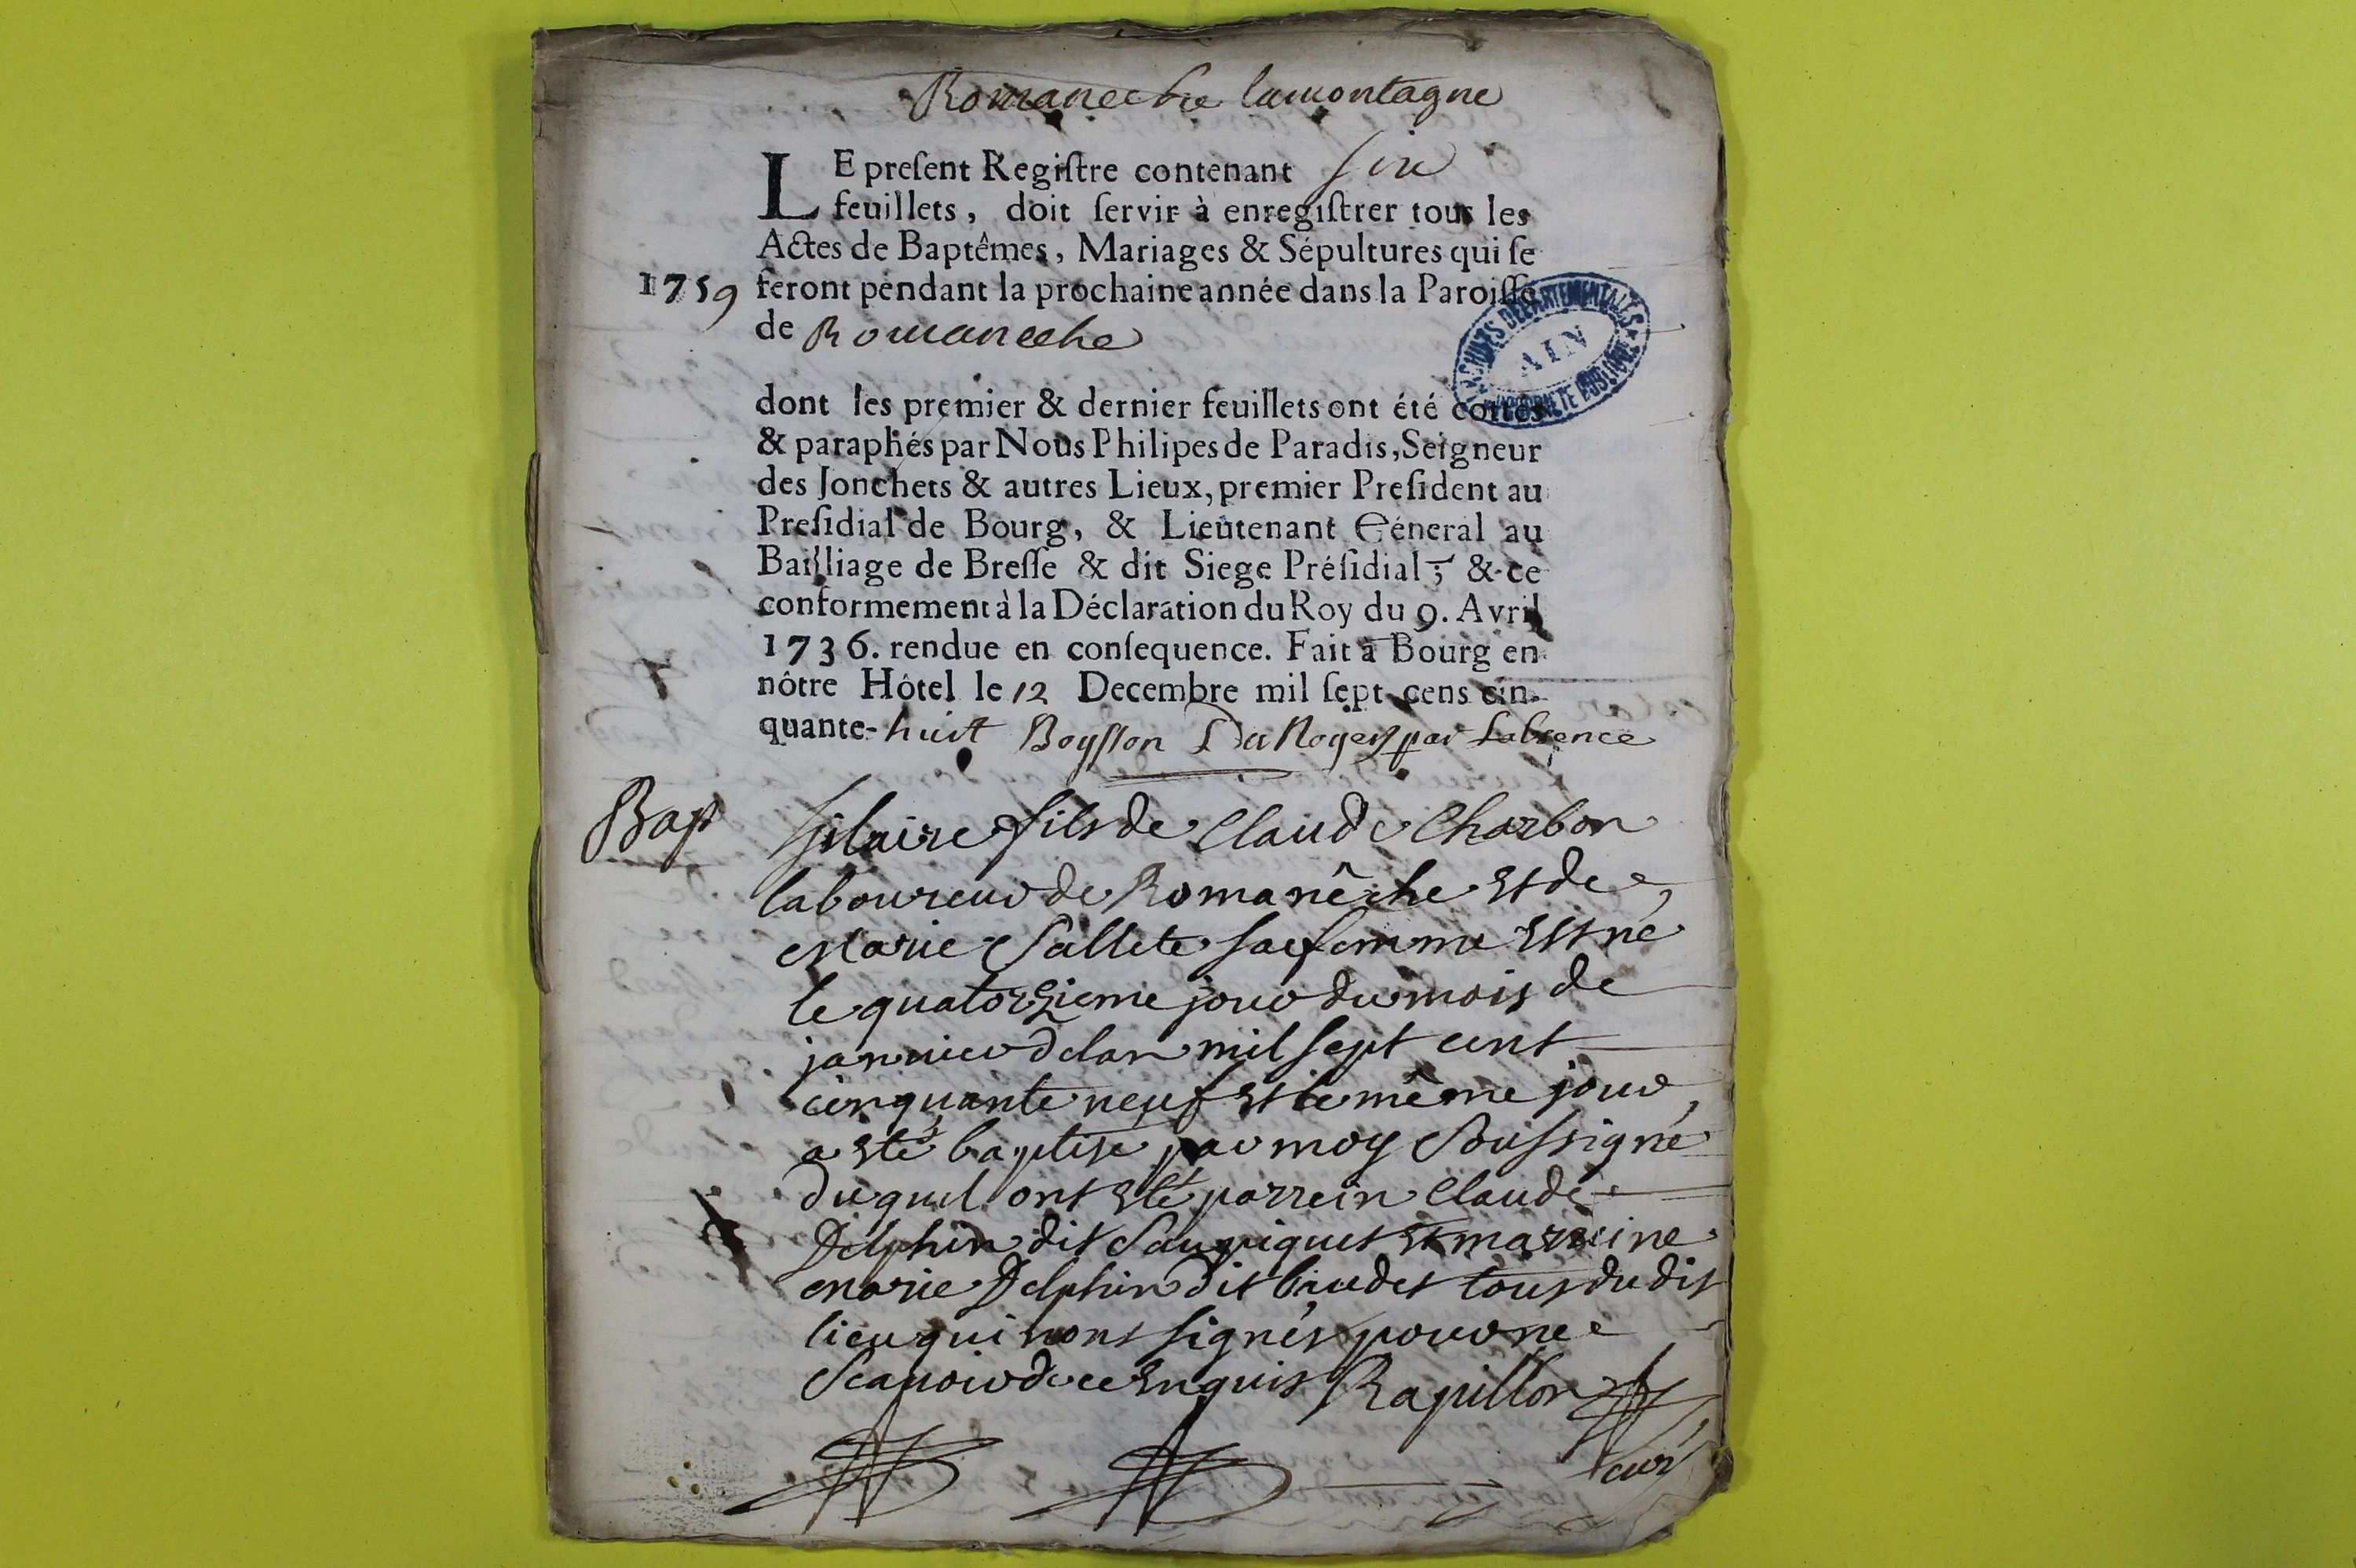 Romaneche lamontagne
LE preſent Regiſtre contenant six
feuillets, doit ſervir à enregiſtrer tous les
Actes de Baptêmes, Mariages & Sépultures qui ſe
1759 feront pendant la prochaine année dans la Paroiſſe
de Romaneche
ARCHIVES DÉPARTEMENTALES
AIN
dont les premier & dernier feuillets ont été cottés
& paraphés par Nous Philipes de Paradis, Seigneur
des Jonchets & autres Lieux, premier Preſident au
Preſidial de Bourg, & Lieutenant Géneral au
Bailliage de Breſſe & dit Siege Préſidial; & ce
conformement à la Déclaration du Roy du 9. Avril
1736. rendue en conſequence. Fait à Bourg en
nôtre Hôtel le 12 Decembre mil ſept cens cin-
quante-huit Boysson par Labsence
Bapt
hilaire fils de Claude Charbon
laboureur de Romanêche Et de
Marie Sallete sa femme Est né
le quatorzieme jour du mois de
janvier de lan mil sept cent
cinquante neuf Et le même jour
a Eté baptise par moy Soussigné
du quel ont Eté parrein Claude
Delphin dit Saupiquet Et marreine
Marie Delphin dit tous du dit
lieu qui nont signés pour ne
Scavoir de ce Enquis Rapillon
curé